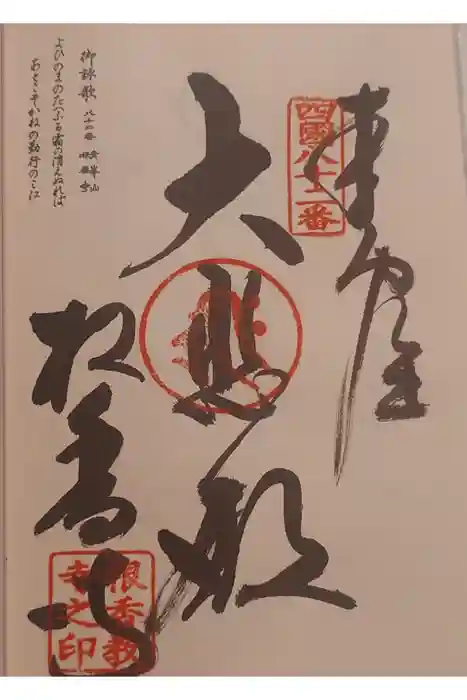 奉
四國八十二番
大悲殿
根香寺
根香教
寺之印
御詠歌 八十二番 青峯山 根香寺
よひのまのたへふる霜の消えぬれば
あとこそかねの勤行のこゑ